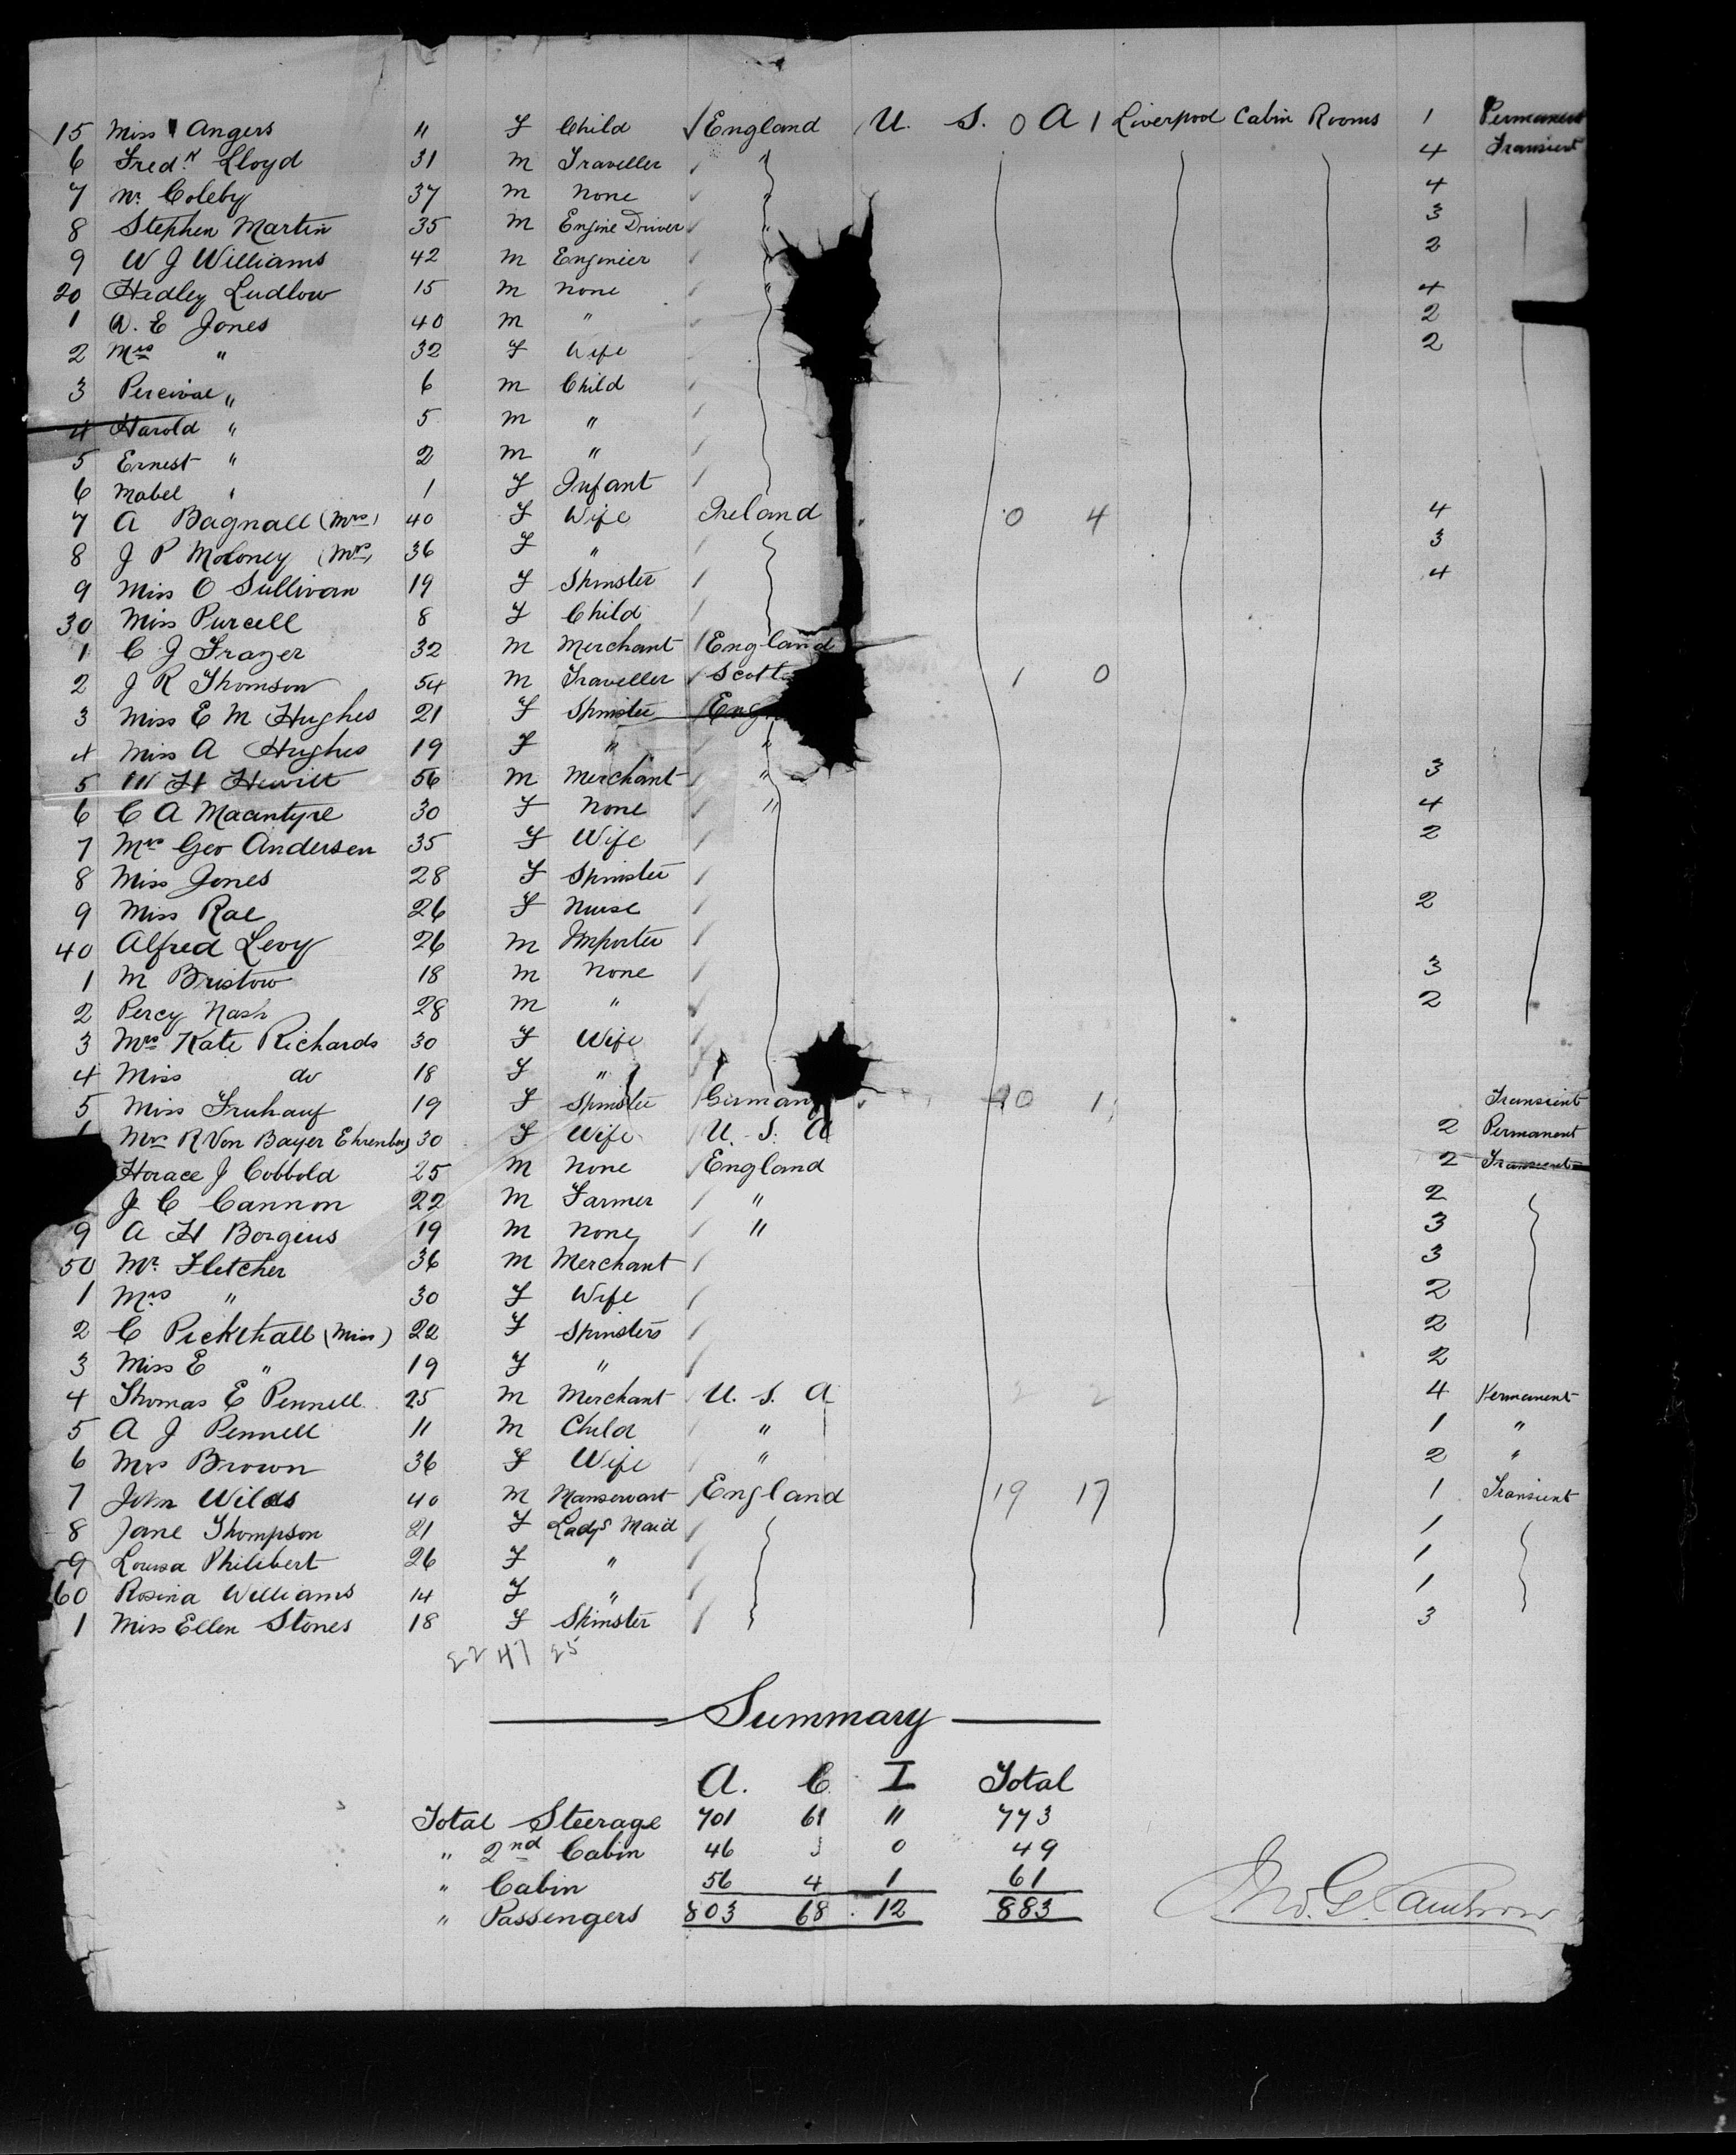 15 Miss Angers " F Child England U. S. 0 A 1 Liverpool Cabin Rooms 1 Permanent
6 Fredk Lloyd 31 M Traveller " 4 Transient
7 Coleby 37 M None " 4
8 Stephen Martin 35 M Engine Driver " 3
9 W J Williams 42 M Engineer " 2
20 Hedley Ludlow 15 M None " 4
1 E Jones 40 M " 2
2 Mrs " 32 F Wife 2
3 Percival " 6 M Child
4 Harold " 5 M "
5 Ernest " 2 M "
6 Mabel " 1 F Infant
7 A Bagnall (Mrs) 40 F Wife Ireland 0 4 4
8 J P Moloney (Mrs) 36 F " 3
9 Miss O Sullivan 19 F Spinster 4
30 Miss Purcell 8 F Child
1 C J Frazer 32 M Merchant England
2 J R Thomson 54 M Traveller Scot 1 0
3 Miss E M Hughes 21 F Spinster Eng
4 Miss A Hughes 19 F " "
5 W H Hewitt 56 M Merchant " 3
6 C A Macintyre 30 F None " 4
7 Mrs Geo Andersen 35 F Wife 2
8 Miss Jones 28 F Spinster
9 Miss Rae 26 F Nurse 2
40 Alfred Levy 26 M Importer
1 M Bristow 18 M None 3
2 Percy Nash 28 M " 2
3 Mrs Kate Richards 30 F Wife
4 Miss do 18 F "
5 Miss Fruhauf 19 F Spinster German 0 1 Transient
Mrs R Von Bayer Ehrenberg 30 F Wife U. S. A 2 Permanent
Horace J Cobbold 25 M None England 2 Transient
J C Cannon 22 M Farmer " 2
9 A H Borgius 19 M None " 3
50 Mr Fletcher 36 M Merchant 3
1 Mrs " 30 F Wife 2
2 C Pickthall (Miss) 22 F Spinsters 2
3 Miss E " 19 F " 2
4 Thomas E Pennell 25 M Merchant U. S. A 2 2 4 Permanent
5 A J Pennell 11 M Child " 1 "
6 Mrs Brown 36 F Wife " 2 "
7 John Wilds 40 M Manservant England 19 17 1 Transient
8 Jane Thompson 21 F Lady's Maid 1
59 Louisa Philibert 26 F " 1
60 Rosina Williams 14 F " 1
1 Miss Ellen Stones 18 F Spinster 3
22 47 25
Summary
A. C. I Total
Total Steerage 701 61 11 773
" 2nd Cabin 46 3 0 49
" Cabin 56 4 1 61
" Passengers 803 68 12 883